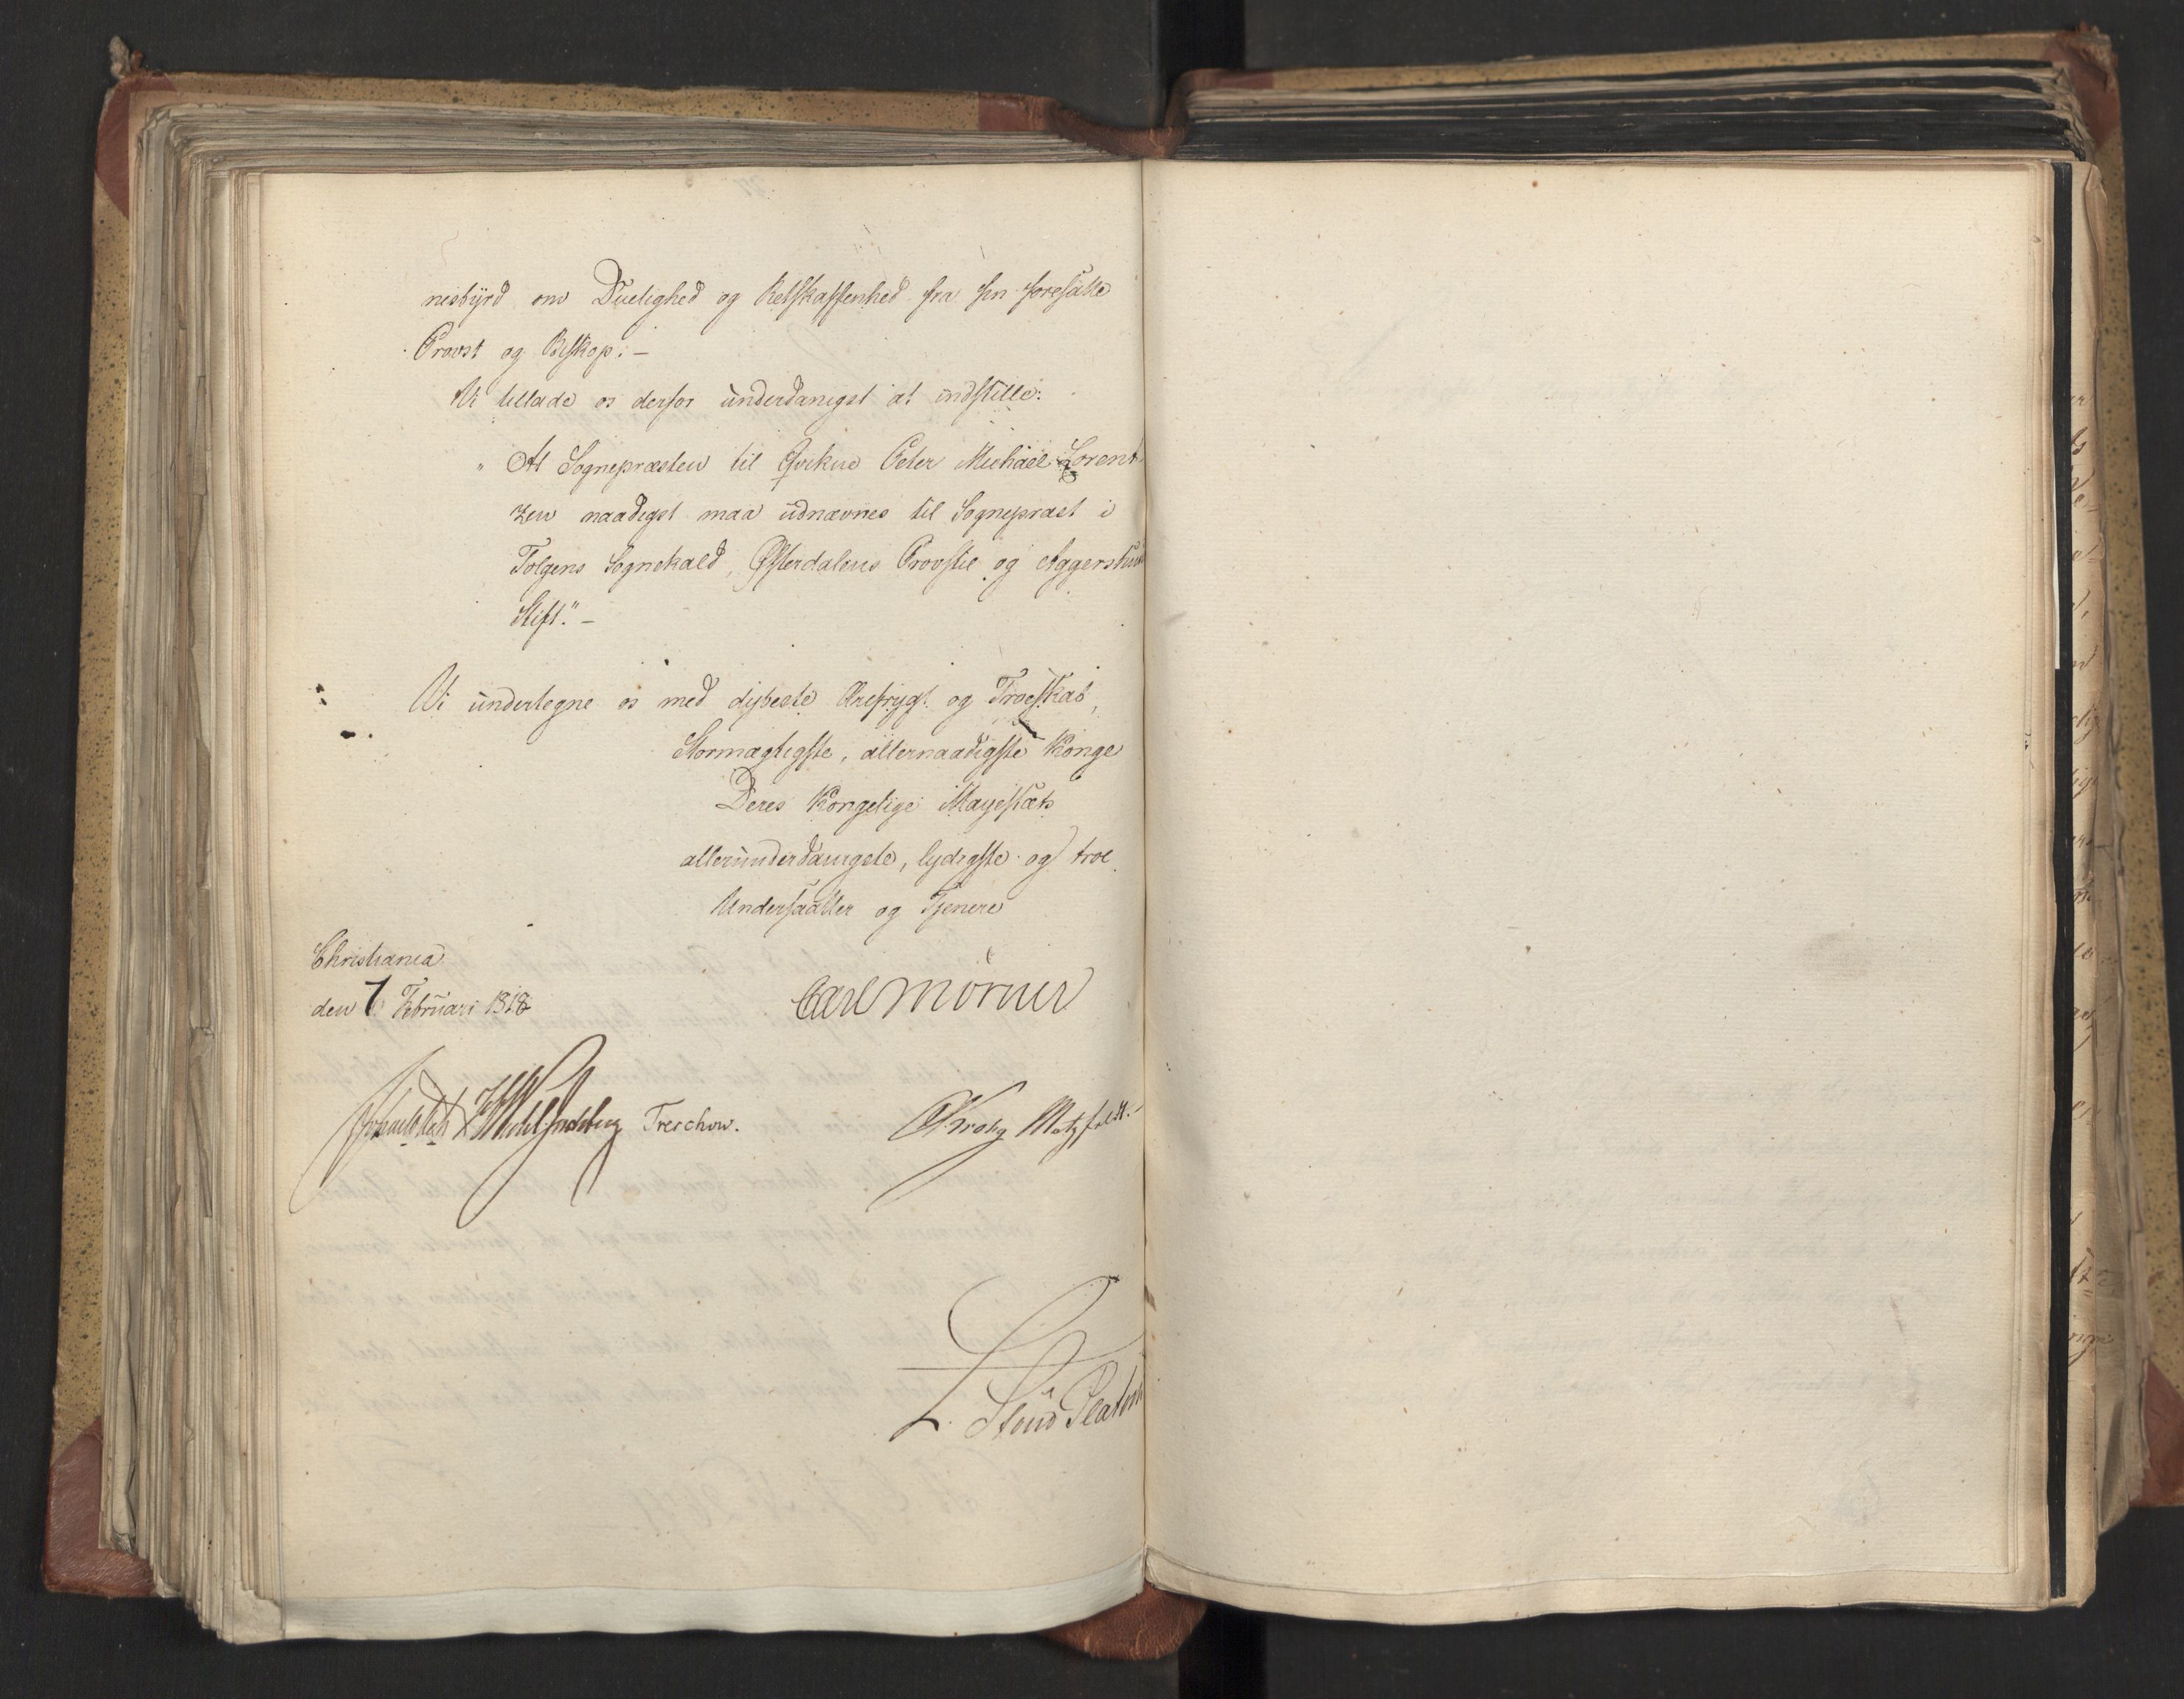 nisbyrd om Duelighed og Retskaffenhed fra sin foresatte
Provst og Biskop. —
Vi tillade os derfor underdanigst at indstille:
" At Sognepræsten til Qvikne Peter Michael Lorent-
zen naadigst maa udnævnes til Sognepræst i
Tolgens Sognekald, Østerdalens Provstie og Aggershuus
Stift." —
Vi undertegne os med dybeste Ærefrygt og Troeskab,
Stormægtigste, allernaadigste Konge
Deres Kongelige Mayestæts
allerunderdanigste, lydigste og troe
Undersaatter og Tjenere
Christiania
den 7 Februari 1818
Carl Mörner
Treschow.
CKrohg Motzfeldt.
L. Stoud Platou